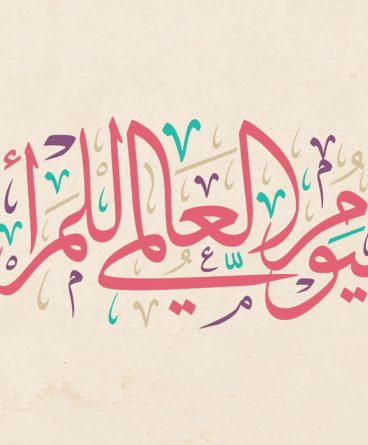 يوم العالمي للمرأ